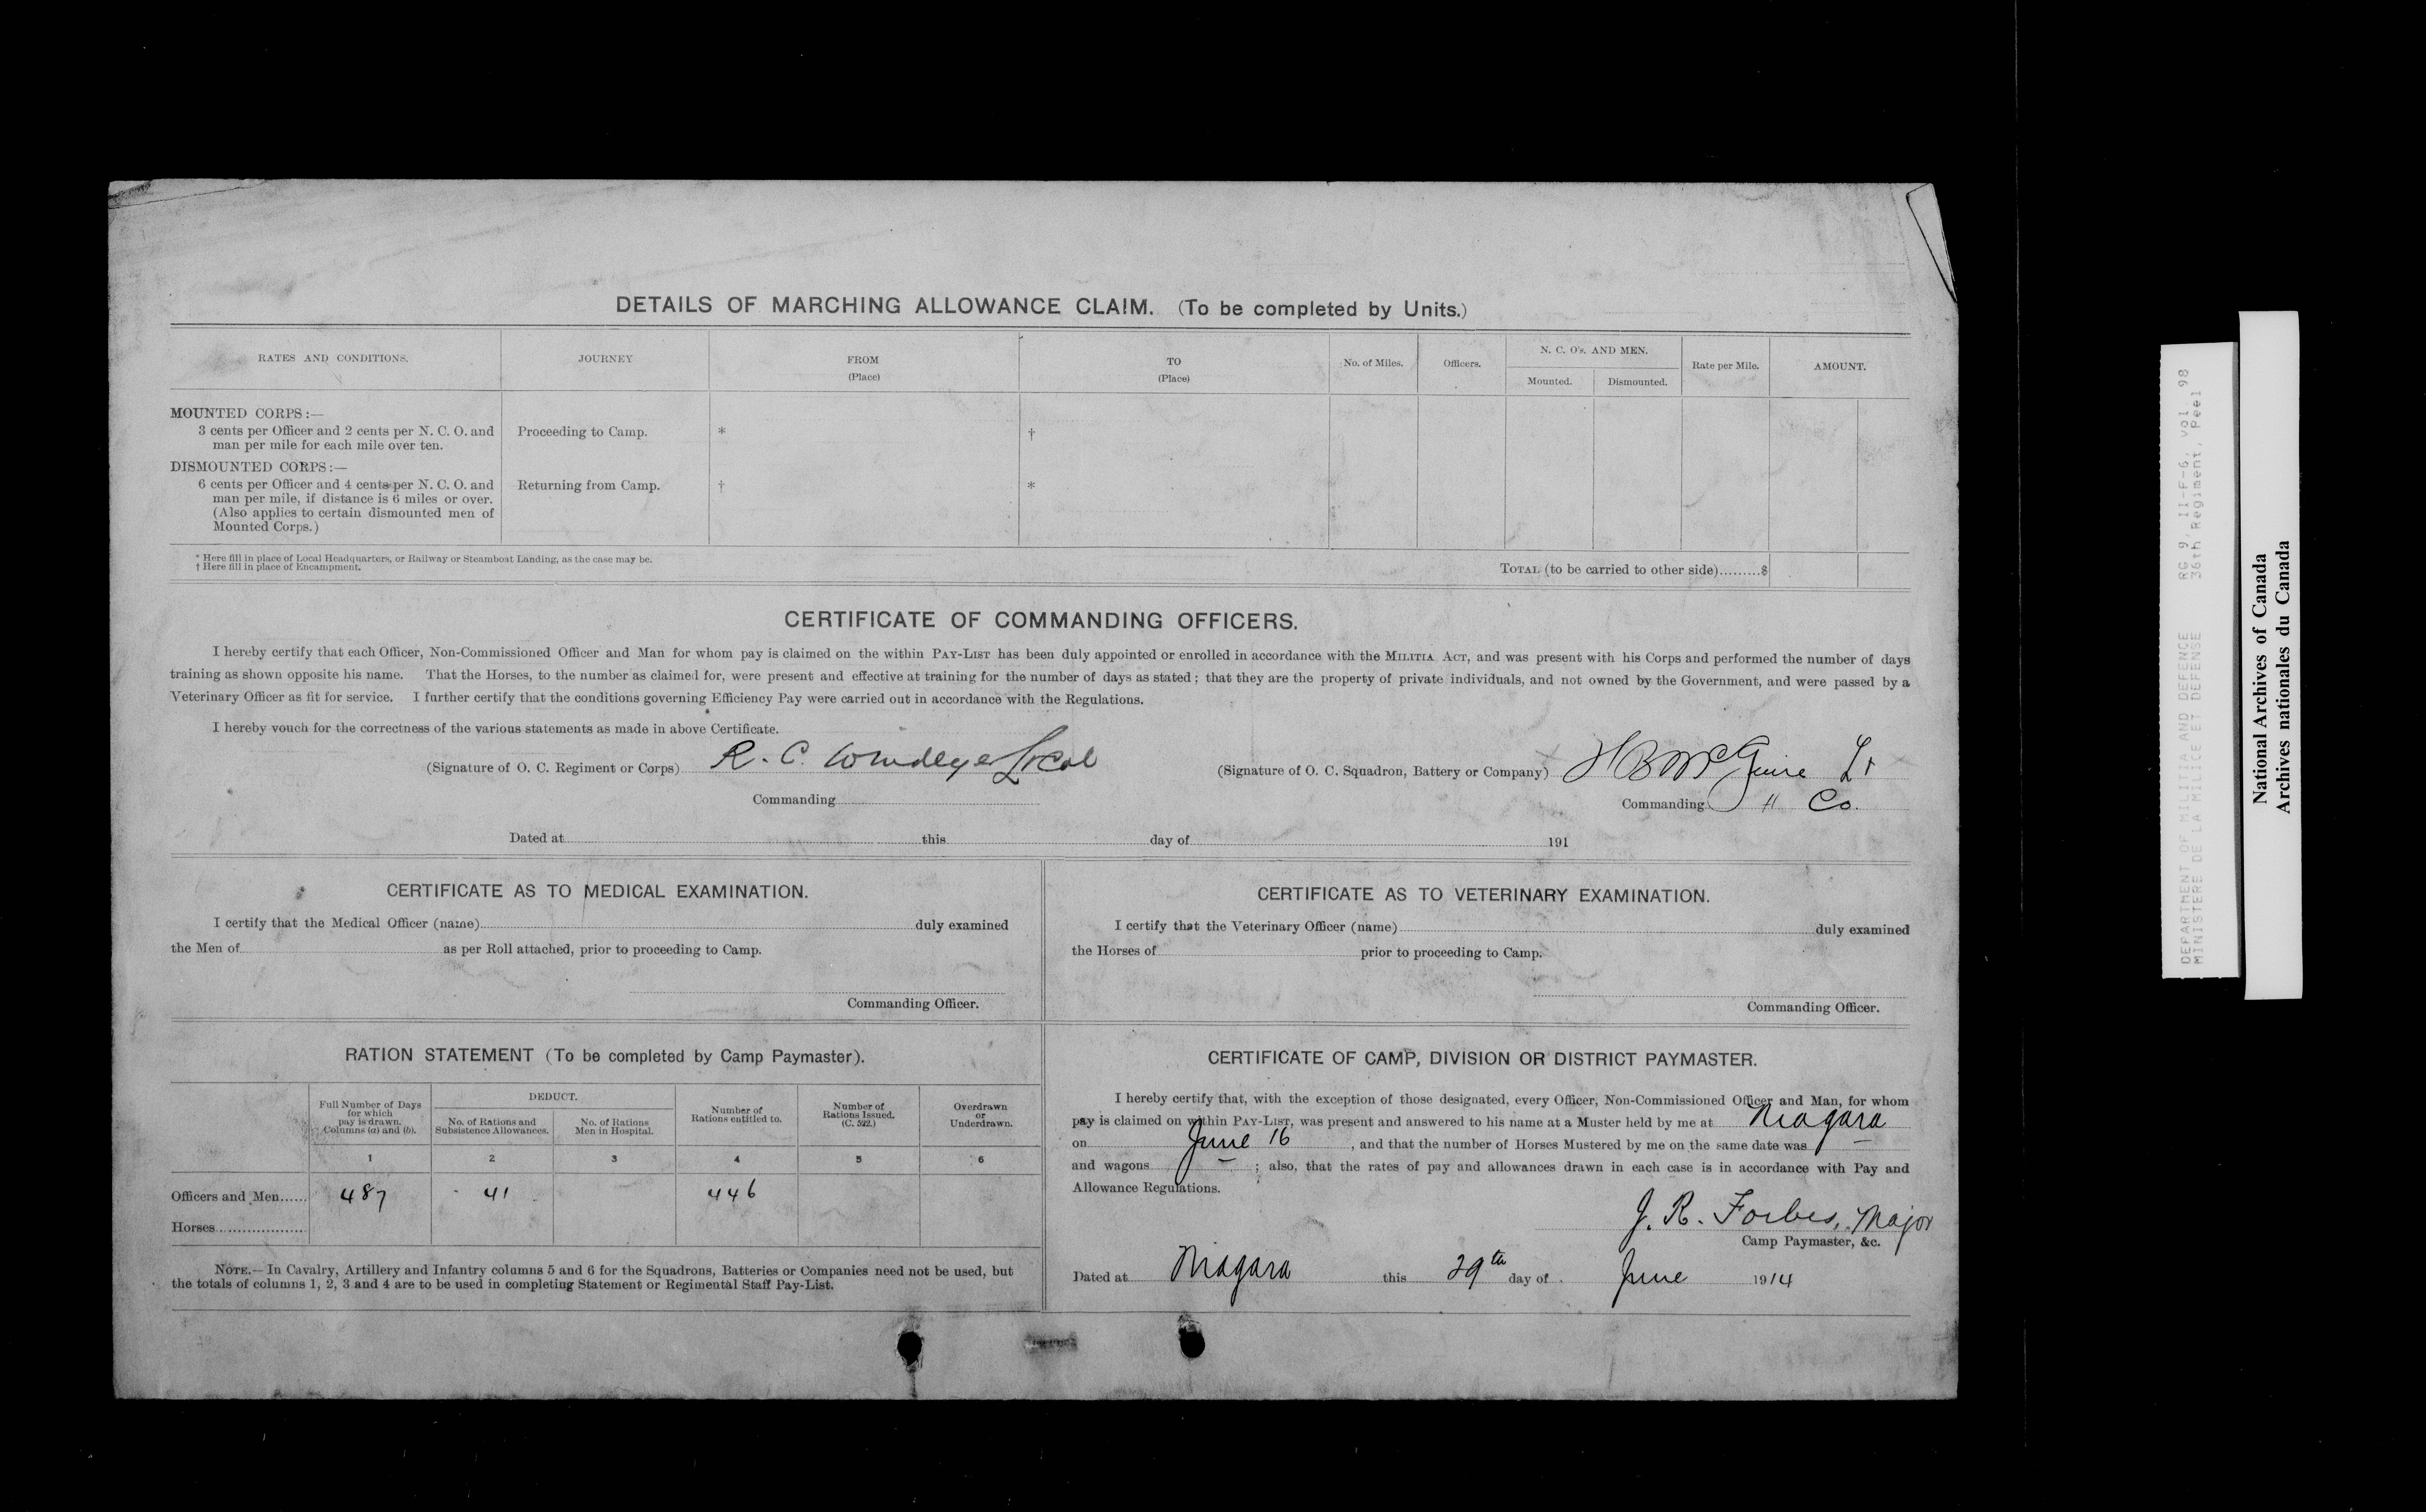 DETAILS OF MARCHING ALLOWANCE CLAIM. (To be completed by Units.)
RATES AND CONDITIONS. JOURNEY FROM (Place) TO (Place) No. of Miles. Officers. N. C. O's. AND MEN. Mounted. Dismounted. Rate per Mile. AMOUNT.
MOUNTED CORPS:—
3 cents per Officer and 2 cents per N. C. O. and Proceeding to Camp. * †
man per mile for each mile over ten.
DISMOUNTED CORPS:—
6 cents per Officer and 4 cents per N. C. O. and Returning from Camp. † *
man per mile, if distance is 6 miles or over.
(Also applies to certain dismounted men of
Mounted Corps.)
* Here fill in place of Local Headquarters, or Railway or Steamboat Landing, as the case may be.
† Here fill in place of Encampment.
TOTAL (to be carried to other side).........$
CERTIFICATE OF COMMANDING OFFICERS.
I hereby certify that each Officer, Non-Commissioned Officer and Man for whom pay is claimed on the within PAY-LIST has been duly appointed or enrolled in accordance with the MILITIA ACT, and was present with his Corps and performed the number of days
training as shown opposite his name. That the Horses, to the number as claimed for, were present and effective at training for the number of days as stated; that they are the property of private individuals, and not owned by the Government, and were passed by a
Veterinary Officer as fit for service. I further certify that the conditions governing Efficiency Pay were carried out in accordance with the Regulations.
I hereby vouch for the correctness of the various statements as made in above Certificate.
(Signature of O. C. Regiment or Corps) R. C. Windeyer Lt Col
(Signature of O. C. Squadron, Battery or Company) H B McGuire Lt
Commanding
Commanding Co.
Dated at this day of 191
CERTIFICATE AS TO MEDICAL EXAMINATION.
I certify that the Medical Officer (name) duly examined
the Men of as per Roll attached, prior to proceeding to Camp.
Commanding Officer.
CERTIFICATE AS TO VETERINARY EXAMINATION.
I certify that the Veterinary Officer (name) duly examined
the Horses of prior to proceeding to Camp.
Commanding Officer.
RATION STATEMENT (To be completed by Camp Paymaster).
Full Number of Days for which pay is drawn. Columns (a) and (b).
DEDUCT.
No. of Rations and Subsistence Allowances.
No. of Rations Men in Hospital.
Number of Rations entitled to.
Number of Rations Issued. (C. 522.)
Overdrawn or Underdrawn.
1 2 3 4 5 6
Officers and Men...... 487 41 446
Horses...................
NOTE.—In Cavalry, Artillery and Infantry columns 5 and 6 for the Squadrons, Batteries or Companies need not be used, but
the totals of columns 1, 2, 3 and 4 are to be used in completing Statement or Regimental Staff Pay-List.
CERTIFICATE OF CAMP, DIVISION OR DISTRICT PAYMASTER.
I hereby certify that, with the exception of those designated, every Officer, Non-Commissioned Officer and Man, for whom
pay is claimed on within PAY-LIST, was present and answered to his name at a Muster held by me at Niagara
on June 16, and that the number of Horses Mustered by me on the same date was —
and wagons — ; also, that the rates of pay and allowances drawn in each case is in accordance with Pay and
Allowance Regulations.
J. R. Forbes, Major
Camp Paymaster, &c.
Dated at Niagara this 29th day of June 1914
DEPARTMENT OF MILITIA AND DEFENCE RG 9, II-F-6, vol. 98
MINISTERE DE LA MILICE ET DEFENSE 36th Regiment, Peel
National Archives of Canada
Archives nationales du Canada